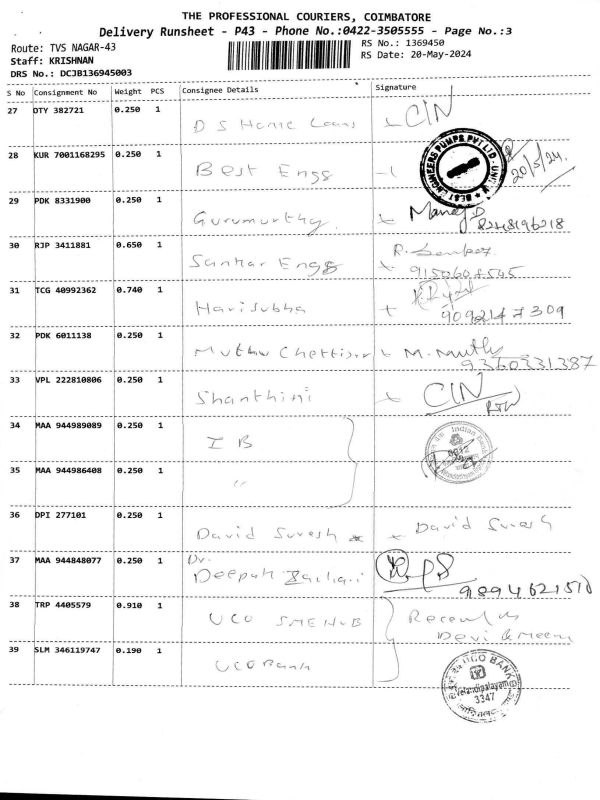 THE PROFESSIONAL COURIERS, COIMBATORE
Delivery Runsheet - P43 - Phone No.:0422-3505555 - Page No.:3
Route: TVS NAGAR-43 RS No.: 1369450
Staff: KRISHNAN RS Date: 20-May-2024
DRS No.: DCJB136945003
S No Consignment No Weight PCS Consignee Details Signature
27 DTY 382721 0.250 1 D S Home Loans CIN
28 KUR 7001168295 0.250 1 Best Engg BEST ENGINEERS PUMPS PVT LTD - UNIT 20/5/24.
29 PDK 8331900 0.250 1 Gurumurthy Manoj.D
8248196218
30 RJP 3411881 0.650 1 Sankar Engg R. Sankar
9150604545
31 TCG 40992362 0.740 1 Harisubha
9092147309
32 PDK 6011138 0.250 1 Muthu Chettiar M. Muthu
9360331387
33 VPL 222810806 0.250 1 Shanthini CIN
RTO
34 MAA 944989089 0.250 1 I B Indian Bank
35 MAA 944986408 0.250 1 "
36 DPI 277101 0.250 1 David Suresh David Suresh
37 MAA 944848077 0.250 1 Dr.
Deepak
9894621510
38 TRP 4405579 0.910 1 UCO SME HUB
Devi & Meena
39 SLM 346119747 0.190 1 UCO Bank UCO BANK
Velandipalayam
3347